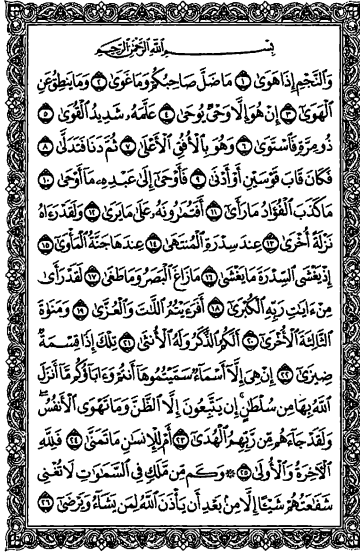 بِسْمِ ٱللَّهِ ٱلرَّحْمَٰنِ ٱلرَّحِيمِ
وَٱلنَّجْمِ إِذَا هَوَىٰ ١ مَا ضَلَّ صَاحِبُكُمْ وَمَا غَوَىٰ ٢ وَمَا يَنطِقُ عَنِ
ٱلْهَوَىٰ ٣ إِنْ هُوَ إِلَّا وَحْىٌ يُوحَىٰ ٤ عَلَّمَهُۥ شَدِيدُ ٱلْقُوَىٰ ٥
ذُو مِرَّةٍ فَٱسْتَوَىٰ ٦ وَهُوَ بِٱلْأُفُقِ ٱلْأَعْلَىٰ ٧ ثُمَّ دَنَا فَتَدَلَّىٰ ٨
فَكَانَ قَابَ قَوْسَيْنِ أَوْ أَدْنَىٰ ٩ فَأَوْحَىٰٓ إِلَىٰ عَبْدِهِۦ مَآ أَوْحَىٰ ١٠
مَا كَذَبَ ٱلْفُؤَادُ مَا رَأَىٰٓ ١١ أَفَتُمَٰرُونَهُۥ عَلَىٰ مَا يَرَىٰ ١٢ وَلَقَدْ رَءَاهُ
نَزْلَةً أُخْرَىٰ ١٣ عِندَ سِدْرَةِ ٱلْمُنتَهَىٰ ١٤ عِندَهَا جَنَّةُ ٱلْمَأْوَىٰٓ ١٥
إِذْ يَغْشَى ٱلسِّدْرَةَ مَا يَغْشَىٰ ١٦ مَا زَاغَ ٱلْبَصَرُ وَمَا طَغَىٰ ١٧ لَقَدْ رَأَىٰ
مِنْ ءَايَٰتِ رَبِّهِ ٱلْكُبْرَىٰٓ ١٨ أَفَرَءَيْتُمُ ٱللَّٰتَ وَٱلْعُزَّىٰ ١٩ وَمَنَوٰةَ
ٱلثَّالِثَةَ ٱلْأُخْرَىٰٓ ٢٠ أَلَكُمُ ٱلذَّكَرُ وَلَهُ ٱلْأُنثَىٰ ٢١ تِلْكَ إِذًا قِسْمَةٌ
ضِيزَىٰٓ ٢٢ إِنْ هِىَ إِلَّآ أَسْمَآءٌ سَمَّيْتُمُوهَآ أَنتُمْ وَءَابَآؤُكُم مَّآ أَنزَلَ
ٱللَّهُ بِهَا مِن سُلْطَٰنٍ إِن يَتَّبِعُونَ إِلَّا ٱلظَّنَّ وَمَا تَهْوَى ٱلْأَنفُسُ ۖ
وَلَقَدْ جَآءَهُم مِّن رَّبِّهِمُ ٱلْهُدَىٰٓ ٢٣ أَمْ لِلْإِنسَٰنِ مَا تَمَنَّىٰ ٢٤ فَلِلَّهِ
ٱلْءَاخِرَةُ وَٱلْأُولَىٰ ٢٥ ۞ وَكَم مِّن مَّلَكٍ فِى ٱلسَّمَٰوَٰتِ لَا تُغْنِى
شَفَٰعَتُهُمْ شَيْـًٔا إِلَّا مِنۢ بَعْدِ أَن يَأْذَنَ ٱللَّهُ لِمَن يَشَآءُ وَيَرْضَىٰٓ ٢٦